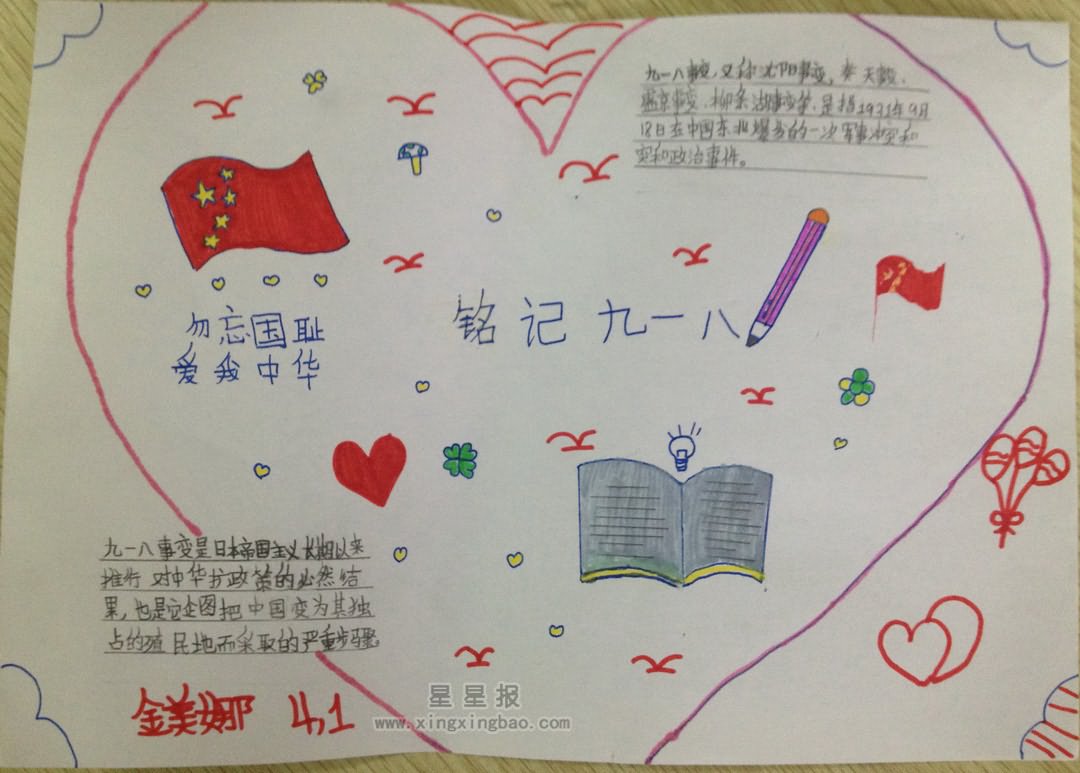 九一八事变,又称沈阳事变,奉天事变、
盛京事变、柳条湖事变等,是指1931年9月
18日在中国东北爆发的一次军事冲突和
突和政治事件。
铭记九一八
勿忘国耻
爱我中华
九一八事变是日本帝国主义长期以来
推行对中华扩政策的必然结
果,也是它企图把中国变为其独
占的殖民地而采取的严重步骤
金美娜 4,1
星星报
www.xingxingbao.com